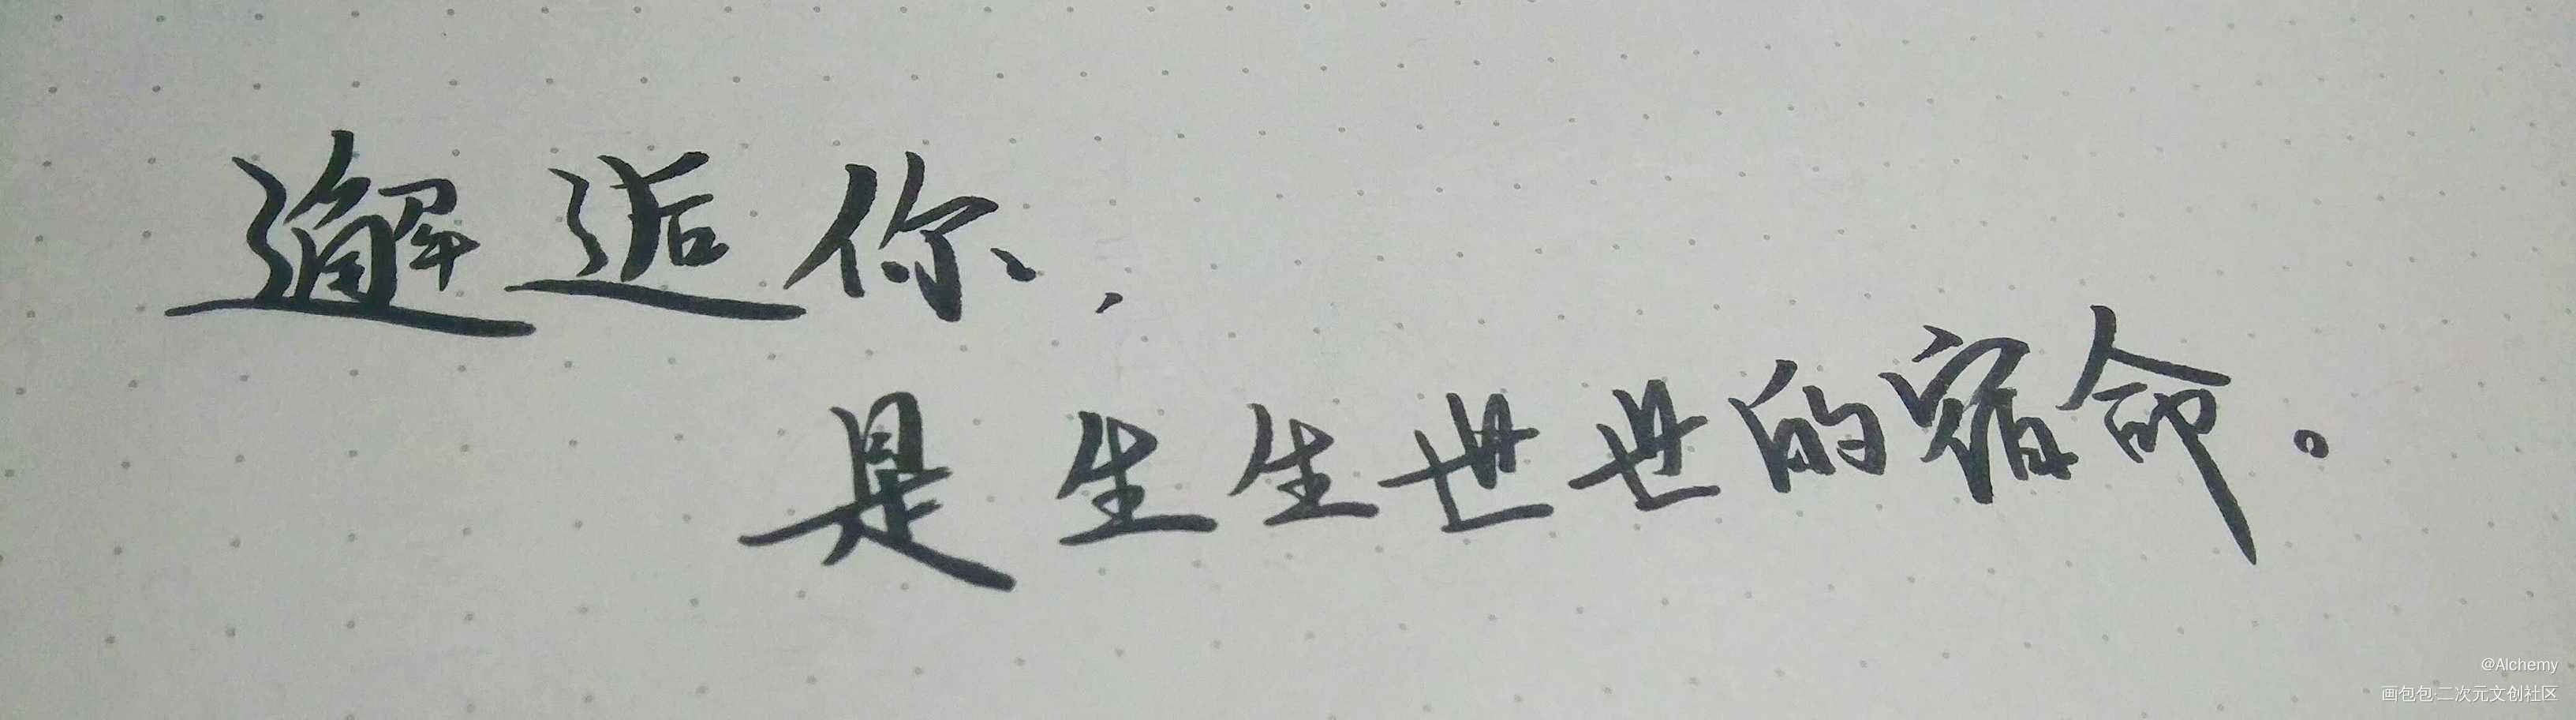 邂逅你，
是生生世世的宿命。
@Alchemy
画包包·二次元文创社区